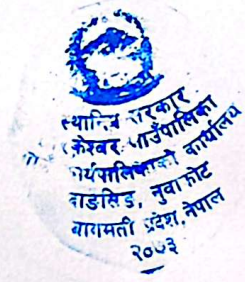 स्थानिय सरकार
तारकेश्वर गाउँपालिका
गाउँ कार्यपालिकाको कार्यालय
दाङसिङ, नुवाकोट
बागमती प्रदेश, नेपाल
२०७३